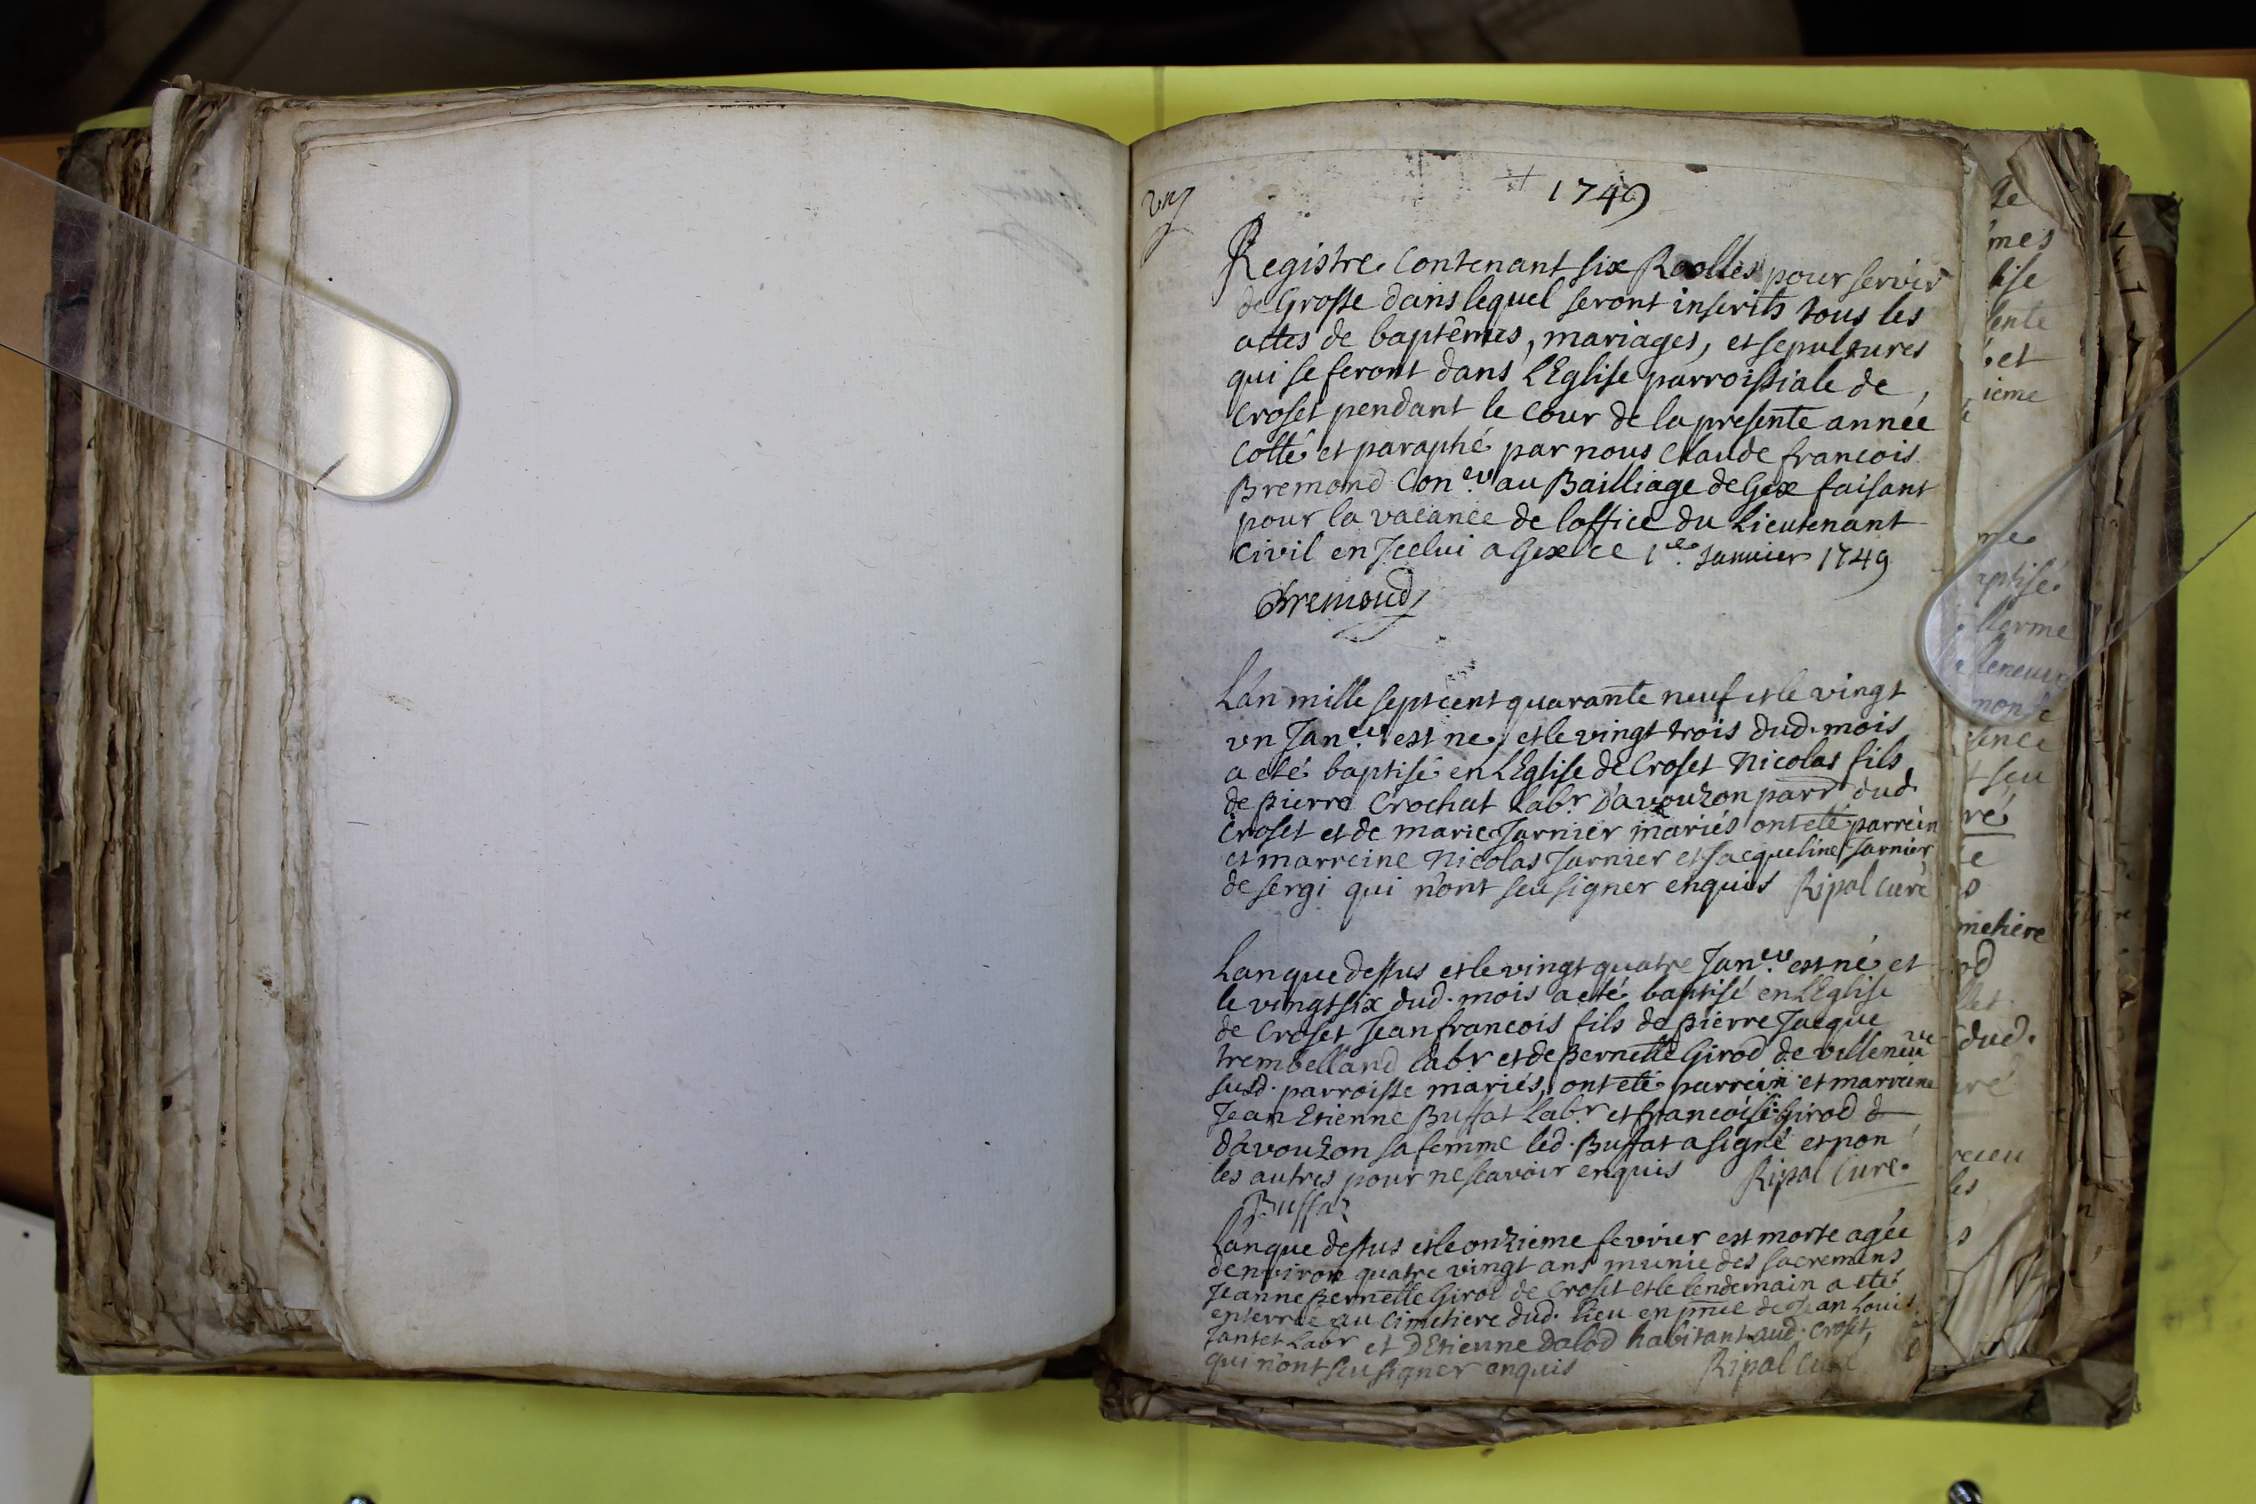 vn
1749
Registre Contenant six Roolles pour servir
de Grosse dans lequel seront inserits tous les
actes de baptêmes, mariages, et sepultures
qui se feront dans L'Eglise parroissiale de
Croset pendant le Cour de la presente année
Cotté et paraphé par nous Claude francois
Bremond Con.er au Bailliage de Gex faisant
pour la vacance de loffice du Lieutenant
Civil en Jcelui a Gex ce 1er Janvier 1749
Bremond
Lan mille sept cent quarante neuf et le vingt
vn Jan.er est ne, et le vingt trois dud. mois
a eté baptisé en L'Eglise de Croset Nicolas fils
de pierre Crochat Labr. D'avouzon parr dud.
Croset et de marie Jarnier mariés ont eté parrein
et marreine Nicolas Jarnier et Jacqueline Jarnier
de sergi qui n'ont seu signer enquis Ripal Curé
Lan que dessus et le vingt quatre Jan.er est né et
le vingt six dud. mois a eté baptisé en L'Eglise
de Croset Jean francois fils de pierre Jacque
trembelland Labr et de Bernette Girod de villeneuve
susd. parroisse mariés, ont eté parrein et marreine
Jean Etienne Buffat Labr et francoise Girod
d'avouzon sa femme led. Buffat a signé et non
les autres pour ne scavoir enquis Ripal Curé.
Buffat
Lan que dessus et le onzieme fevrier est morte agée
denviron quatre vingt ans munie des sacremens
Jeanne Bernette Girod de Croset et le lendemain a eté
enterrée au Cimetiere dud. lieu en pnce de Jean Louis
Jantet Labr et D'Etienne Dalod habitant aud. Croset,
qui n'ont seu signer enquis Ripal Curé